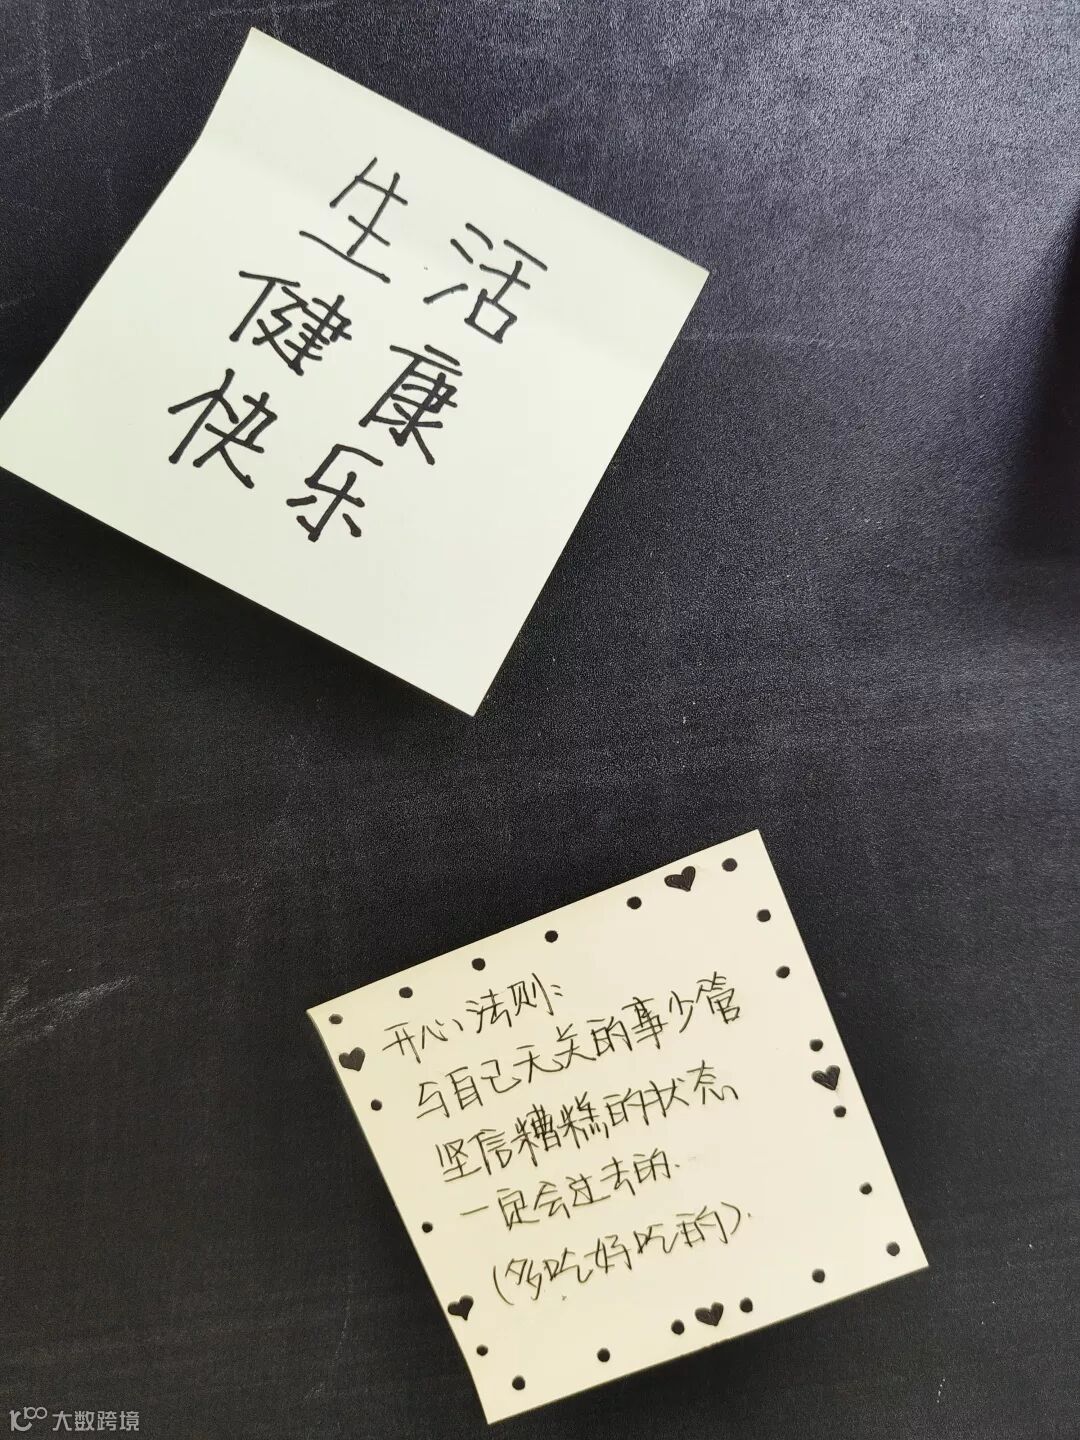 生活
健康
快乐
开心法则:
与自己无关的事少管
坚信糟糕的状态
一定会过去的.
(多吃好吃的).
大数跨境